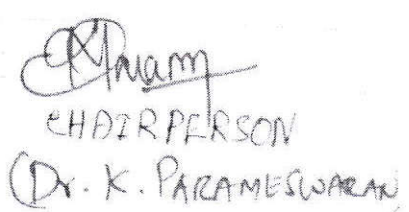 CHAIRPERSON
(Dr. K. PARAMESWARAN